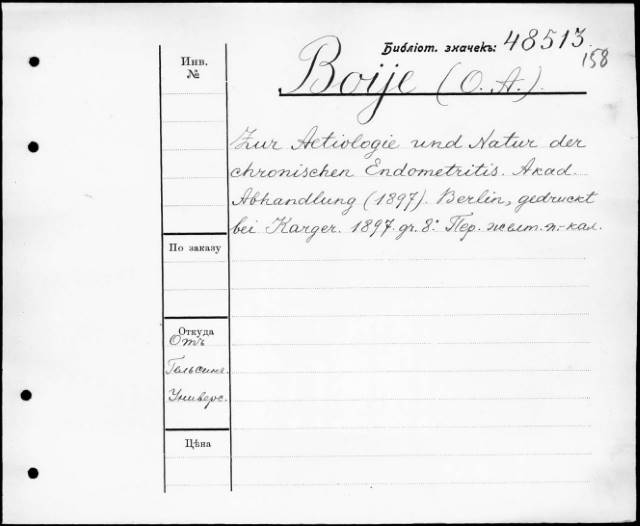 Библіот. значекъ: 48513
158
Инв.
№
Boije (O. A.).
Zur Aetiologie und Natur der
chronischen Endometritis. Akad.
Abhandlung (1897). Berlin, gedruckt
bei Karger. 1897. gr. 8º. Пер. желт. п.-кал.
По заказу
Откуда
Отъ
Гельсинг.
Универс.
Цѣна